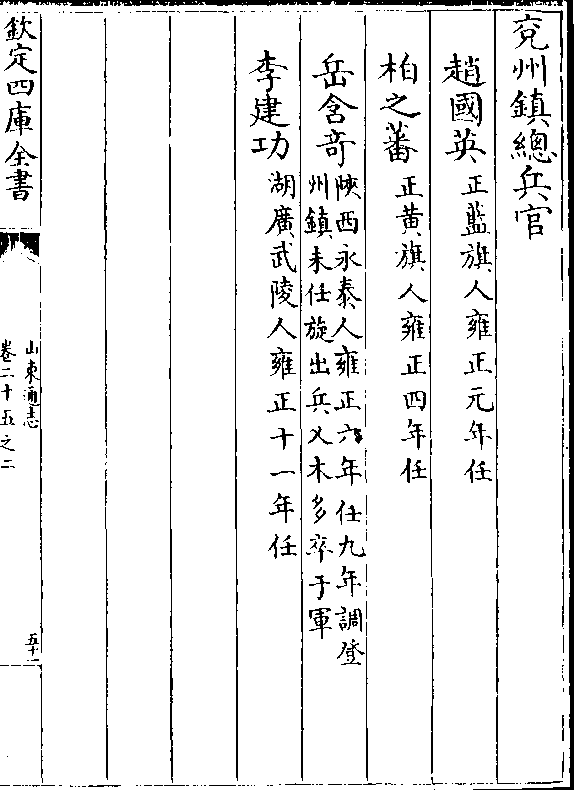 兖州鎮總兵官
趙國英正藍旗人雍正元年任
柏之蕃正黄旗人雍正四年任
岳含竒陜西永泰人雍正六年任九年調登
州鎮未任旋出兵乂木多卒于軍
李建功湖廣武陵人雍正十一年任
欽定四庫全書
山東通志
卷二十五之二
五十一